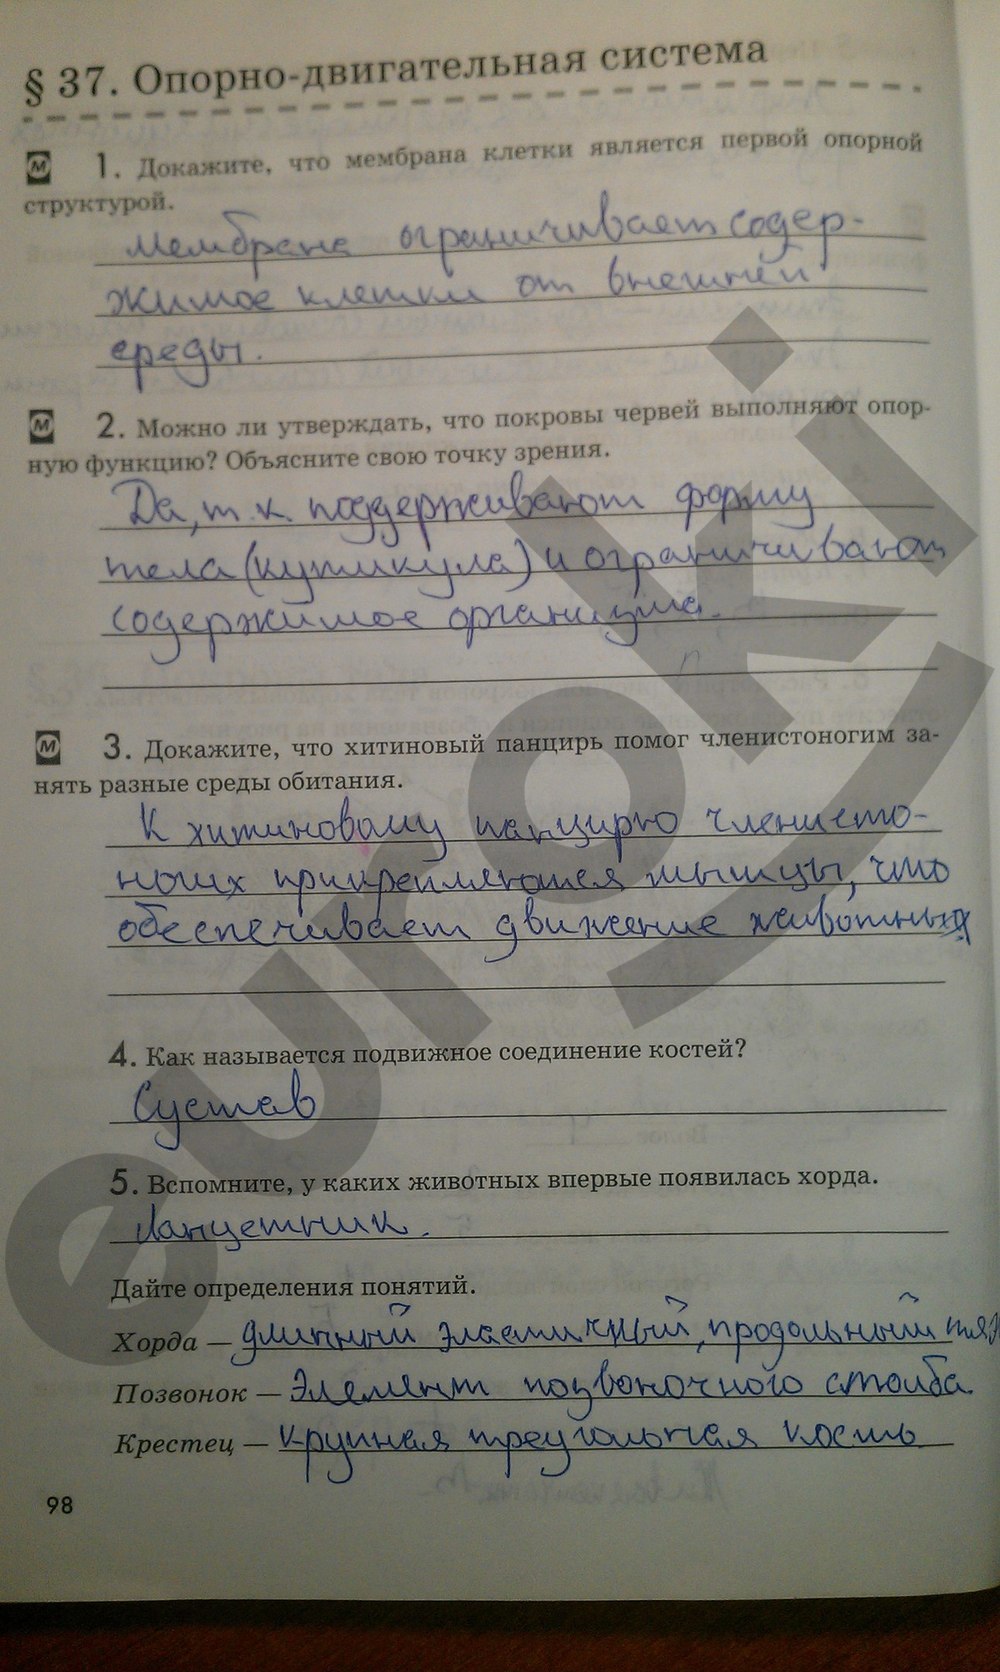 § 37. Опорно-двигательная система
М 1. Докажите, что мембрана клетки является первой опорной
структурой.
Мембрана ограничивает содер-
жимое клетки от внешней
среды.
М 2. Можно ли утверждать, что покровы червей выполняют опор-
ную функцию? Объясните свою точку зрения.
Да, т.к. поддерживают форму
тела (кутикула) и ограничивают
содержимое организма.
М 3. Докажите, что хитиновый панцирь помог членистоногим за-
нять разные среды обитания.
К хитиновому панцирю членисто-
ногих прикрепляются мышцы, что
обеспечивает движение животных
4. Как называется подвижное соединение костей?
Сустав
5. Вспомните, у каких животных впервые появилась хорда.
Ланцетник.
Дайте определения понятий.
Хорда — длинный эластичный, продольный тяж
Позвонок — Элемент позвоночного столба
Крестец — крупная треугольная кость
98
euroki